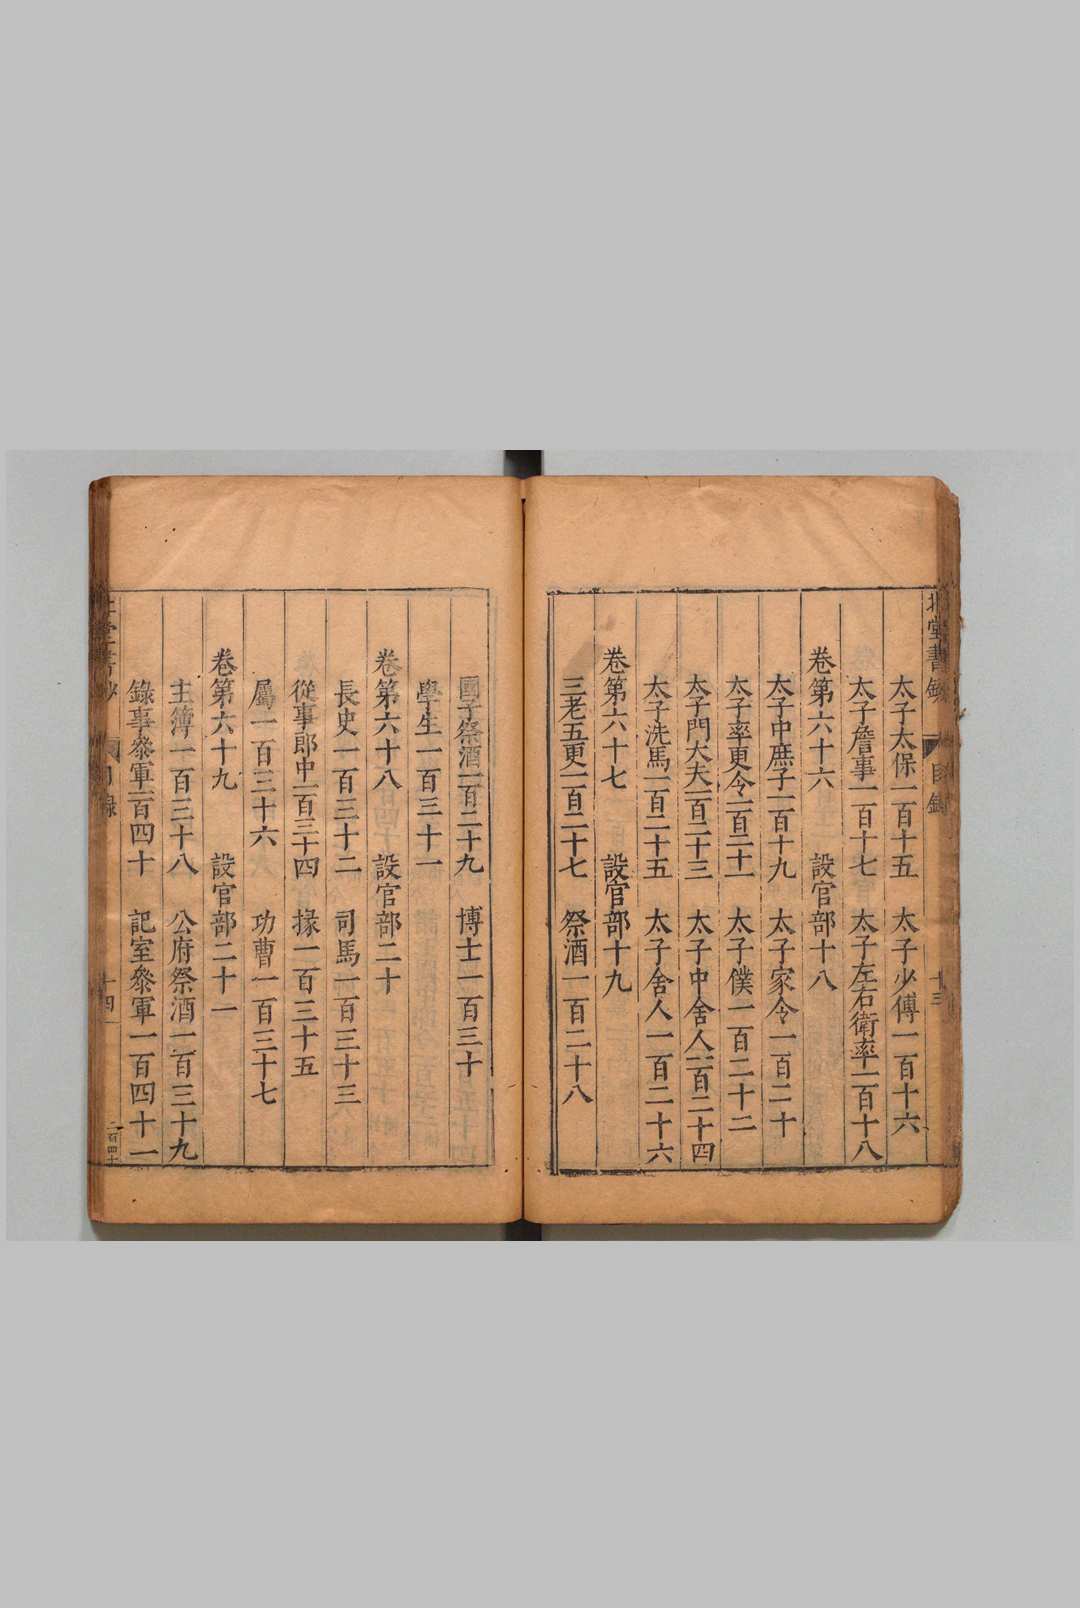 北堂書鈔 目錄 十三
太子太保一百十五 太子少傅一百十六
太子詹事一百十七 太子左右衛率一百十八
卷第六十六 設官部十八
太子中庶子一百十九 太子家令一百二十
太子率更令一百二十一 太子僕一百二十二
太子門大夫一百二十三 太子中舍人一百二十四
太子洗馬一百二十五 太子舍人一百二十六
卷第六十七 設官部十九
三老五更一百二十七 祭酒一百二十八
國子祭酒一百二十九 博士一百三十
學生一百三十一
卷第六十八 設官部二十
長史一百三十二 司馬一百三十三
從事郎中一百三十四 掾一百三十五
屬一百三十六 功曹一百三十七
卷第六十九 設官部二十一
主簿一百三十八 公府祭酒一百三十九
錄事叅軍一百四十 記室叅軍一百四十一
北堂書鈔 目錄 十四